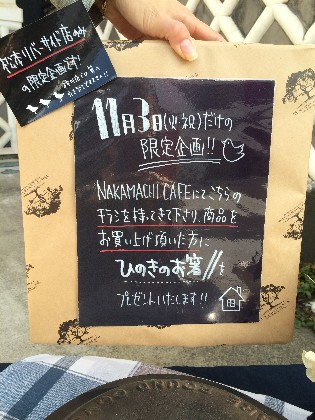 リバーサイド店のみ
の限定企画です!
11月3日(火・祝)だけの
限定企画!!
NAKAMACHI CAFEにてこちらの
チラシを持ってきて下さり、商品を
お買い上げ頂いた方に
ひのきのお箸!!を
プレゼントいたします!!